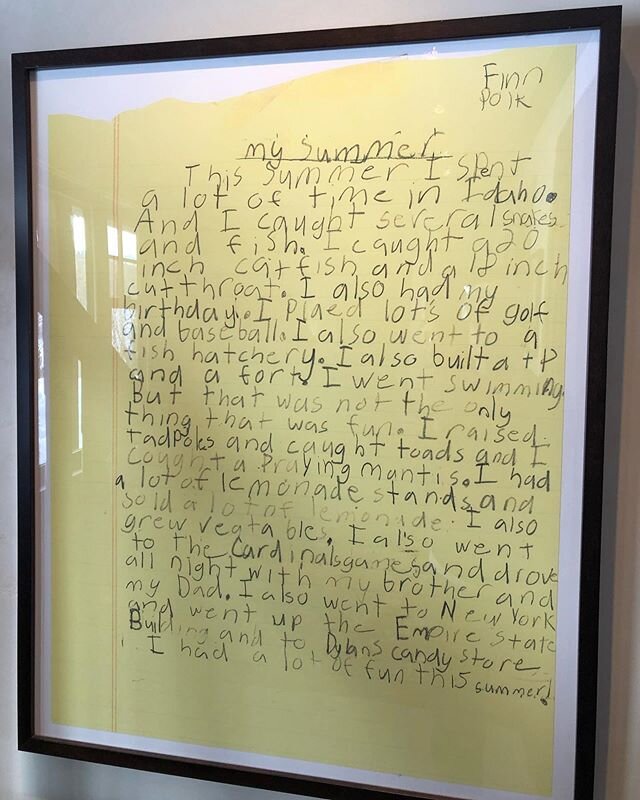 Finn
Polk
my summer
This summer I spent
a lot of time in Idaho.
And I caught several snakes
and fish. I caught a 20
inch catfish and a 18 inch
cutthroat. I also had my
birthday. I Plaed lots of golf
and baseball. I also went to a
fish hatchery. I also built a tP
and a fort. I went swimming.
But that was not the only
thing that was fun. I raised
tadpoles and caught toads and I
cought a Praying mantis. I had
a lot of lemonade stands and
sold a lot of lemonade. I also
grew vegta bles. I also went
to the Cardinals games and drove
all night with my brother and
my Dad. I also went to New York
and went up the Empire State
Building and to Dylans candy store
I had a lot of fun this summer!